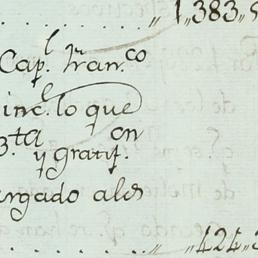 .......,,1,383,,
Cap.l Fran.co
inc.l lo que
3.ta y gratif.on
argado a los
.......,,424,,